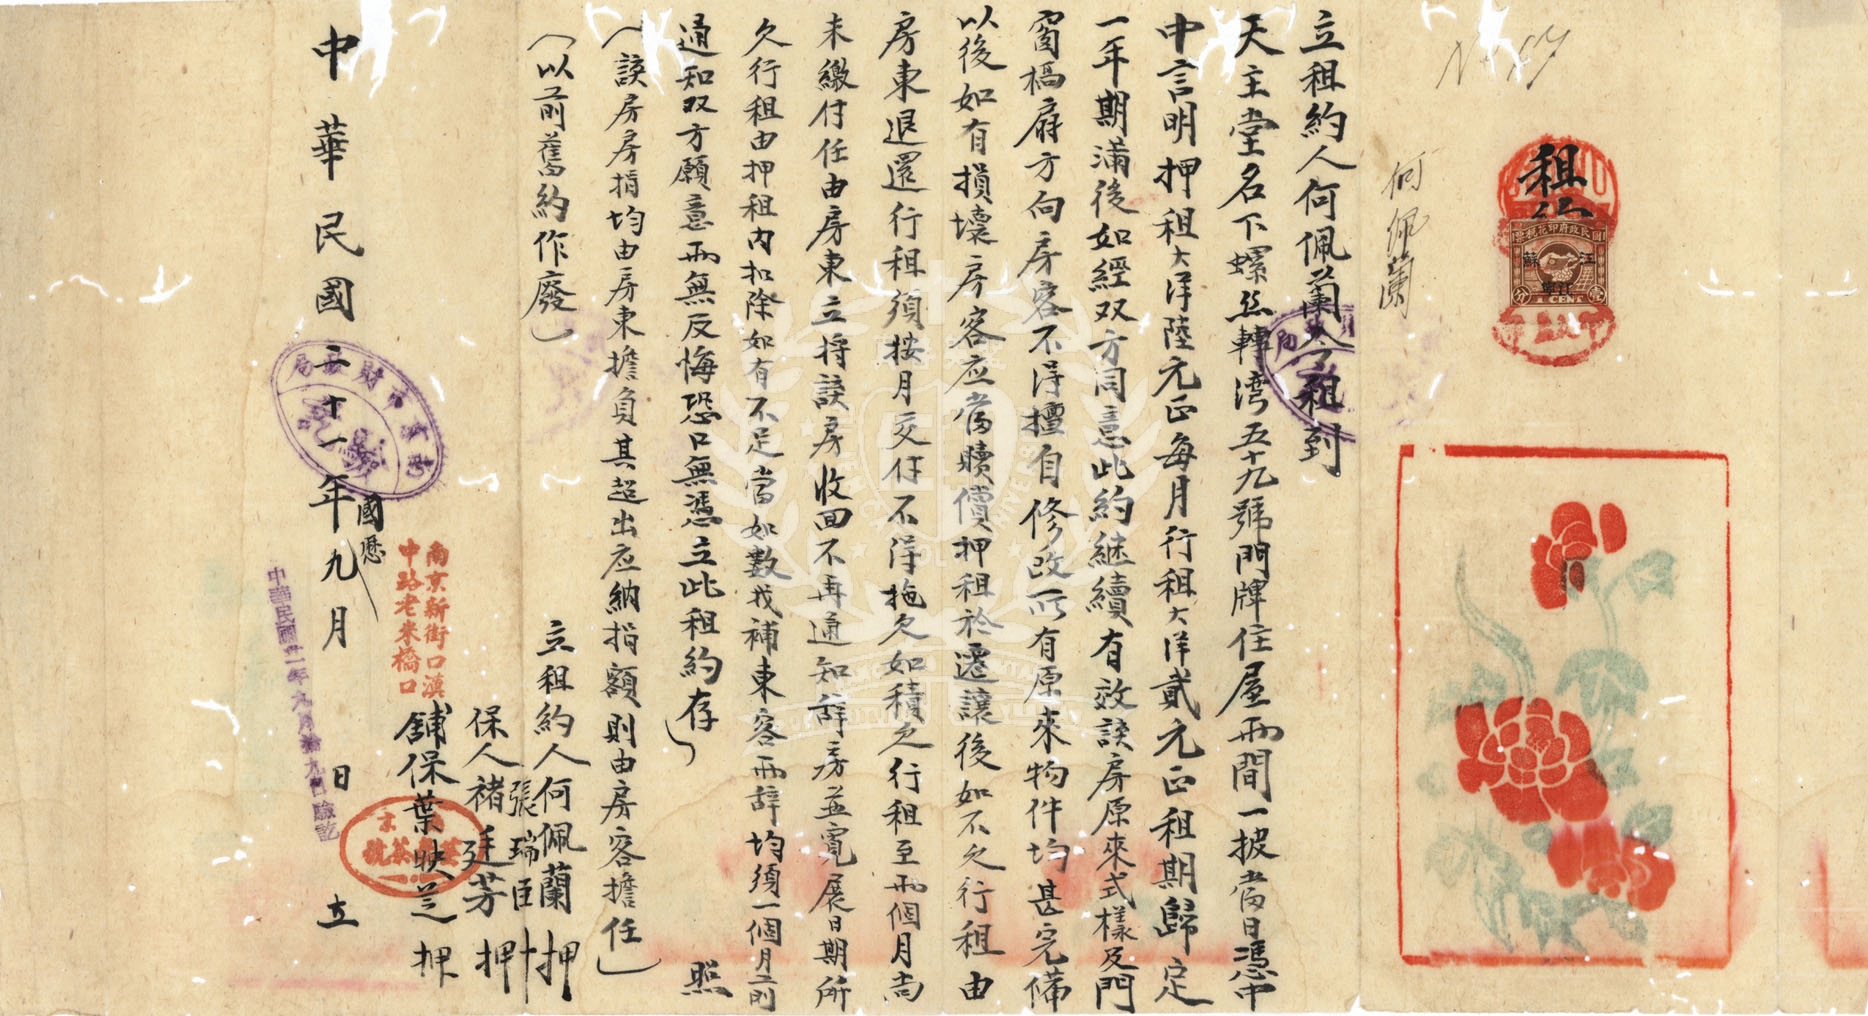 何佩蘭
租
國民政府印花稅票
江蘇
江寧
壹分
1 CENT
立租約人何佩蘭今租到
天主堂名下螺丝轉湾五十九號門牌住屋兩間一披當日憑中
中言明押租大洋陸元正每月行租大洋貳元正租期歸定
一年期滿後如經双方同意此約继續有效該房原來式樣及門
窗槅扇方向房客不得擅自修改所有原來物件均甚完備
以後如有損壞房客应當賠價押租於遷讓後如不欠行租由
房東退還行租須按月交付不得拖欠如積欠行租至兩個月尚
未繳付任由房東立将該房收回不再通知辞房並寬展日期所
欠行租由押租内扣除如有不足當如數找補東客兩辞均須一個月前
通知双方願意兩無反悔恐口無憑立此租約存照
(該房房捐均由房東擔負其超出应納捐額則由房客擔任)
(以前舊約作廢)
立租約人何佩蘭押
張瑞臣十
保人褚廷芳押
舖保葉映芝押
南京新街口滇
中路老米橋口
國歷
中華民國二十一年九月 日立
南京市財政局
中華民國廿一年九月拾九日驗訖